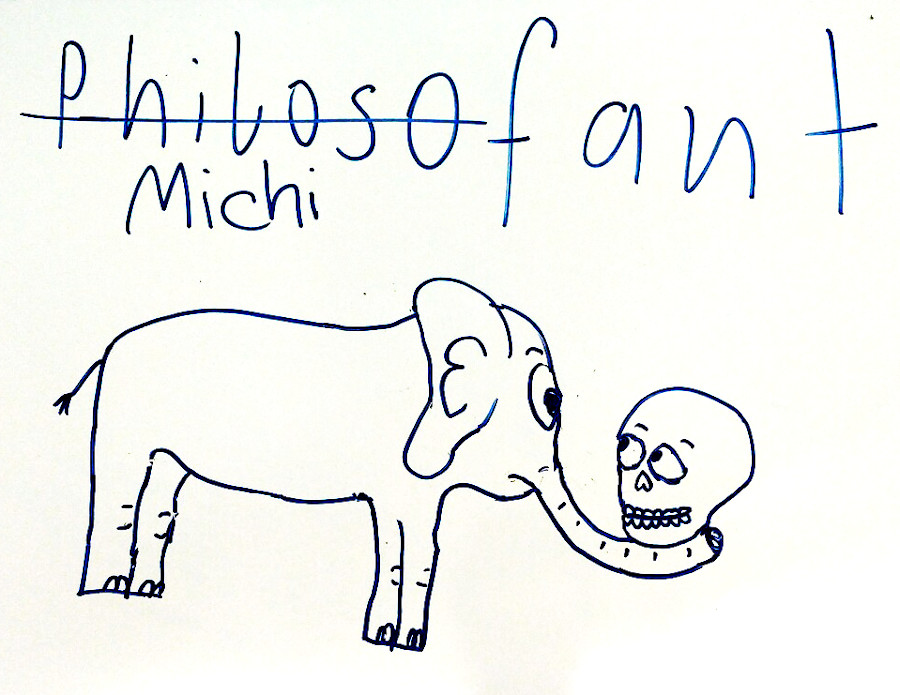 Philosofant
Michi